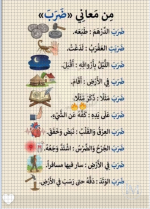 مِن مَعاني «ضَرَبَ»
ضَرَبَ الدِّرْهَمَ : طَبَعَه.
ضَرَبَ العَقْرَبُ : لَدَغَتْ.
ضَرَبَ اللَّيْلُ بِأَرْوَاقِهِ : أَقْبَلَ.
ضَرَبَ في الأَرْضِ : أَقَامَ.
ضَرَبَ مَثَلًا : ذَكَرَ مَثَلًا.
ضَرَبَ عَلَى يَدِهِ : كَفَّهُ عَنِ الشَّيْءِ.
ضَرَبَ العِرْقُ والقَلْبُ : نَبَضَ وَخَفَقَ.
ضَرَبَ الجُرْحُ والضِّرْسُ : اشْتَدَّ وَجَعُهُ.
ضَرَبَ في الأَرْضِ : سار فيها مسافراً.
ضَرَبَ الوَتَدَ : دَقَّهُ حتى رَسَبَ في الأَرْضِ.